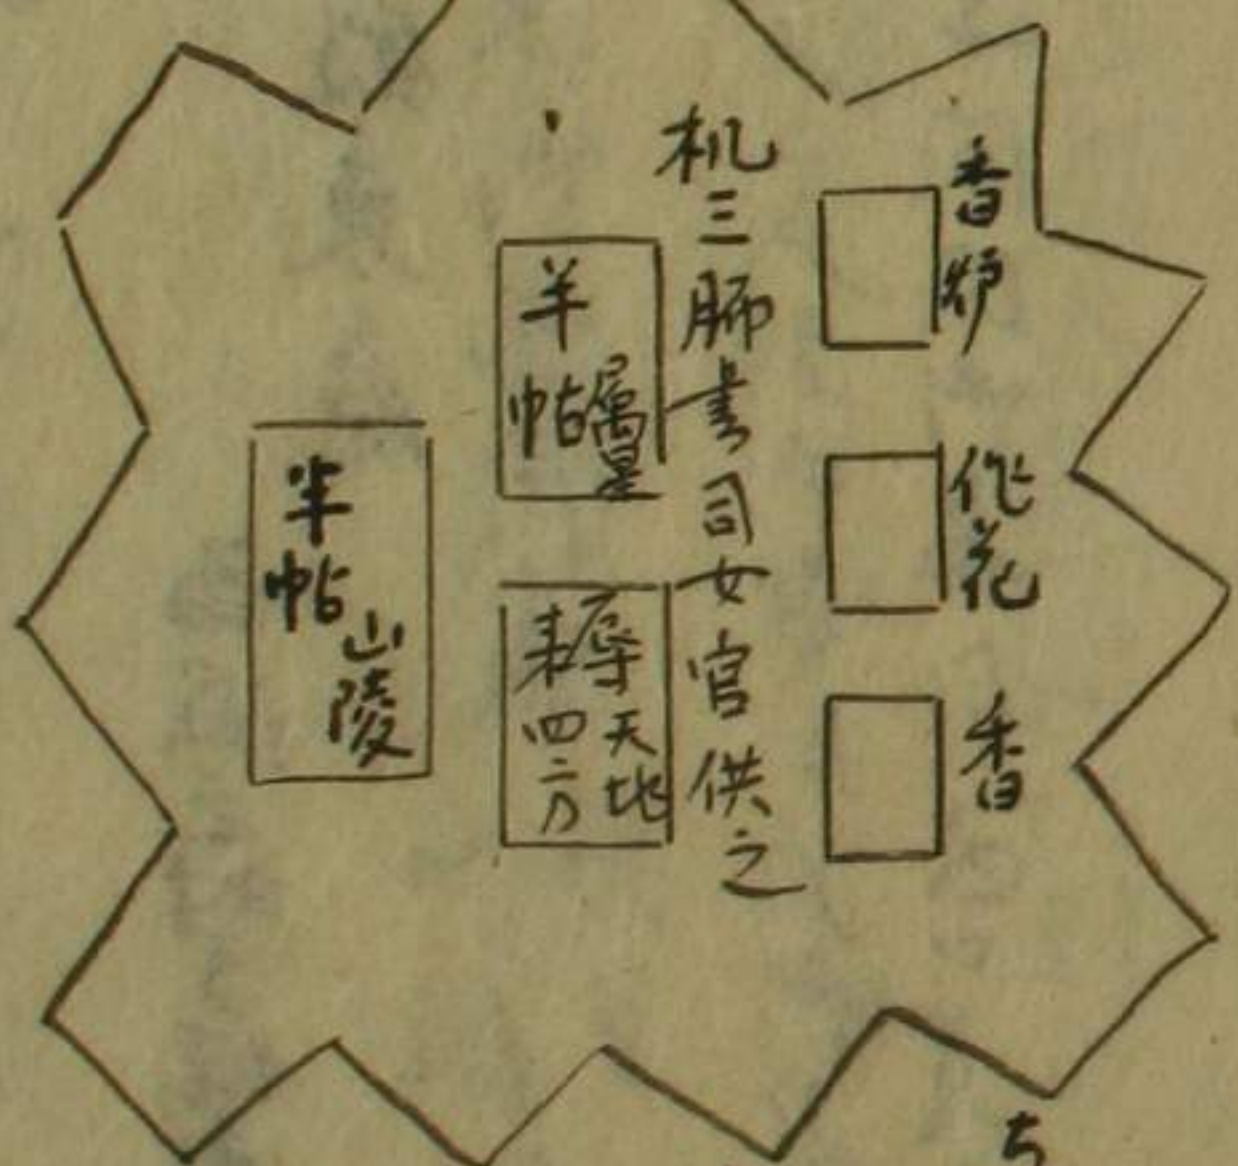 香炉
作花
香
机三脚書司女官供之
半帖
属星
天地
四方
半帖
山陵